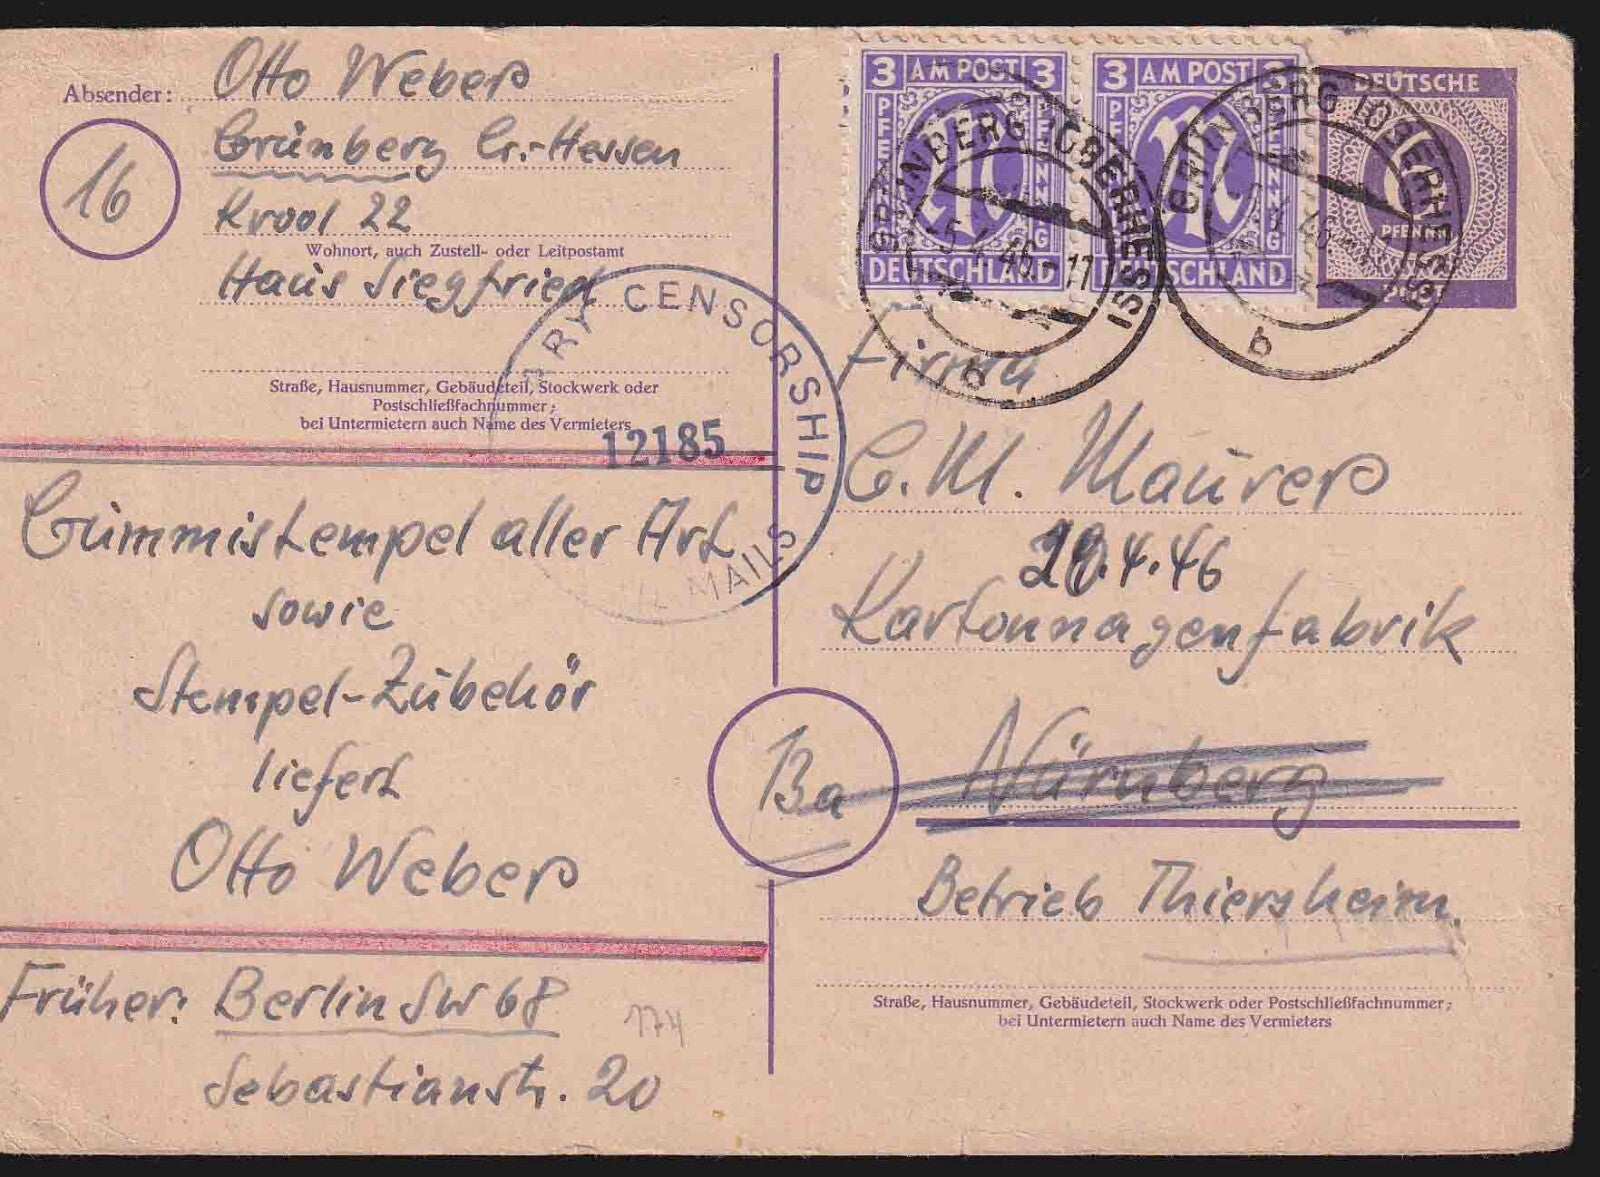 Absender: Otto Weber
16
Grünberg Gr.-Hessen
Krool 22
Wohnort, auch Zustell- oder Leitpostamt
Haus Siegfried
Straße, Hausnummer, Gebäudeteil, Stockwerk oder
Postschließfachnummer;
bei Untermietern auch Name des Vermieters
CENSORSHIP
MAILS
12185
Gummistempel aller Art
sowie
Stempel-Zubehör
liefert
Otto Weber
Früher: Berlin SW 68
Sebastianstr. 20
174
3 AM POST 3
PFENNIG
DEUTSCHLAND
3 AM POST 3
PFENNIG
DEUTSCHLAND
DEUTSCHE
6
PFENNIG
POST
GRÜNBERG (OBERHESS)
b
GRÜNBERG (OBERHESS)
b
Firma
C. M. Maurer
20.4.46
Kartonnagenfabrik
13a
Nürnberg
Betrieb Thiersheim.
Straße, Hausnummer, Gebäudeteil, Stockwerk oder Postschließfachnummer;
bei Untermietern auch Name des Vermieters